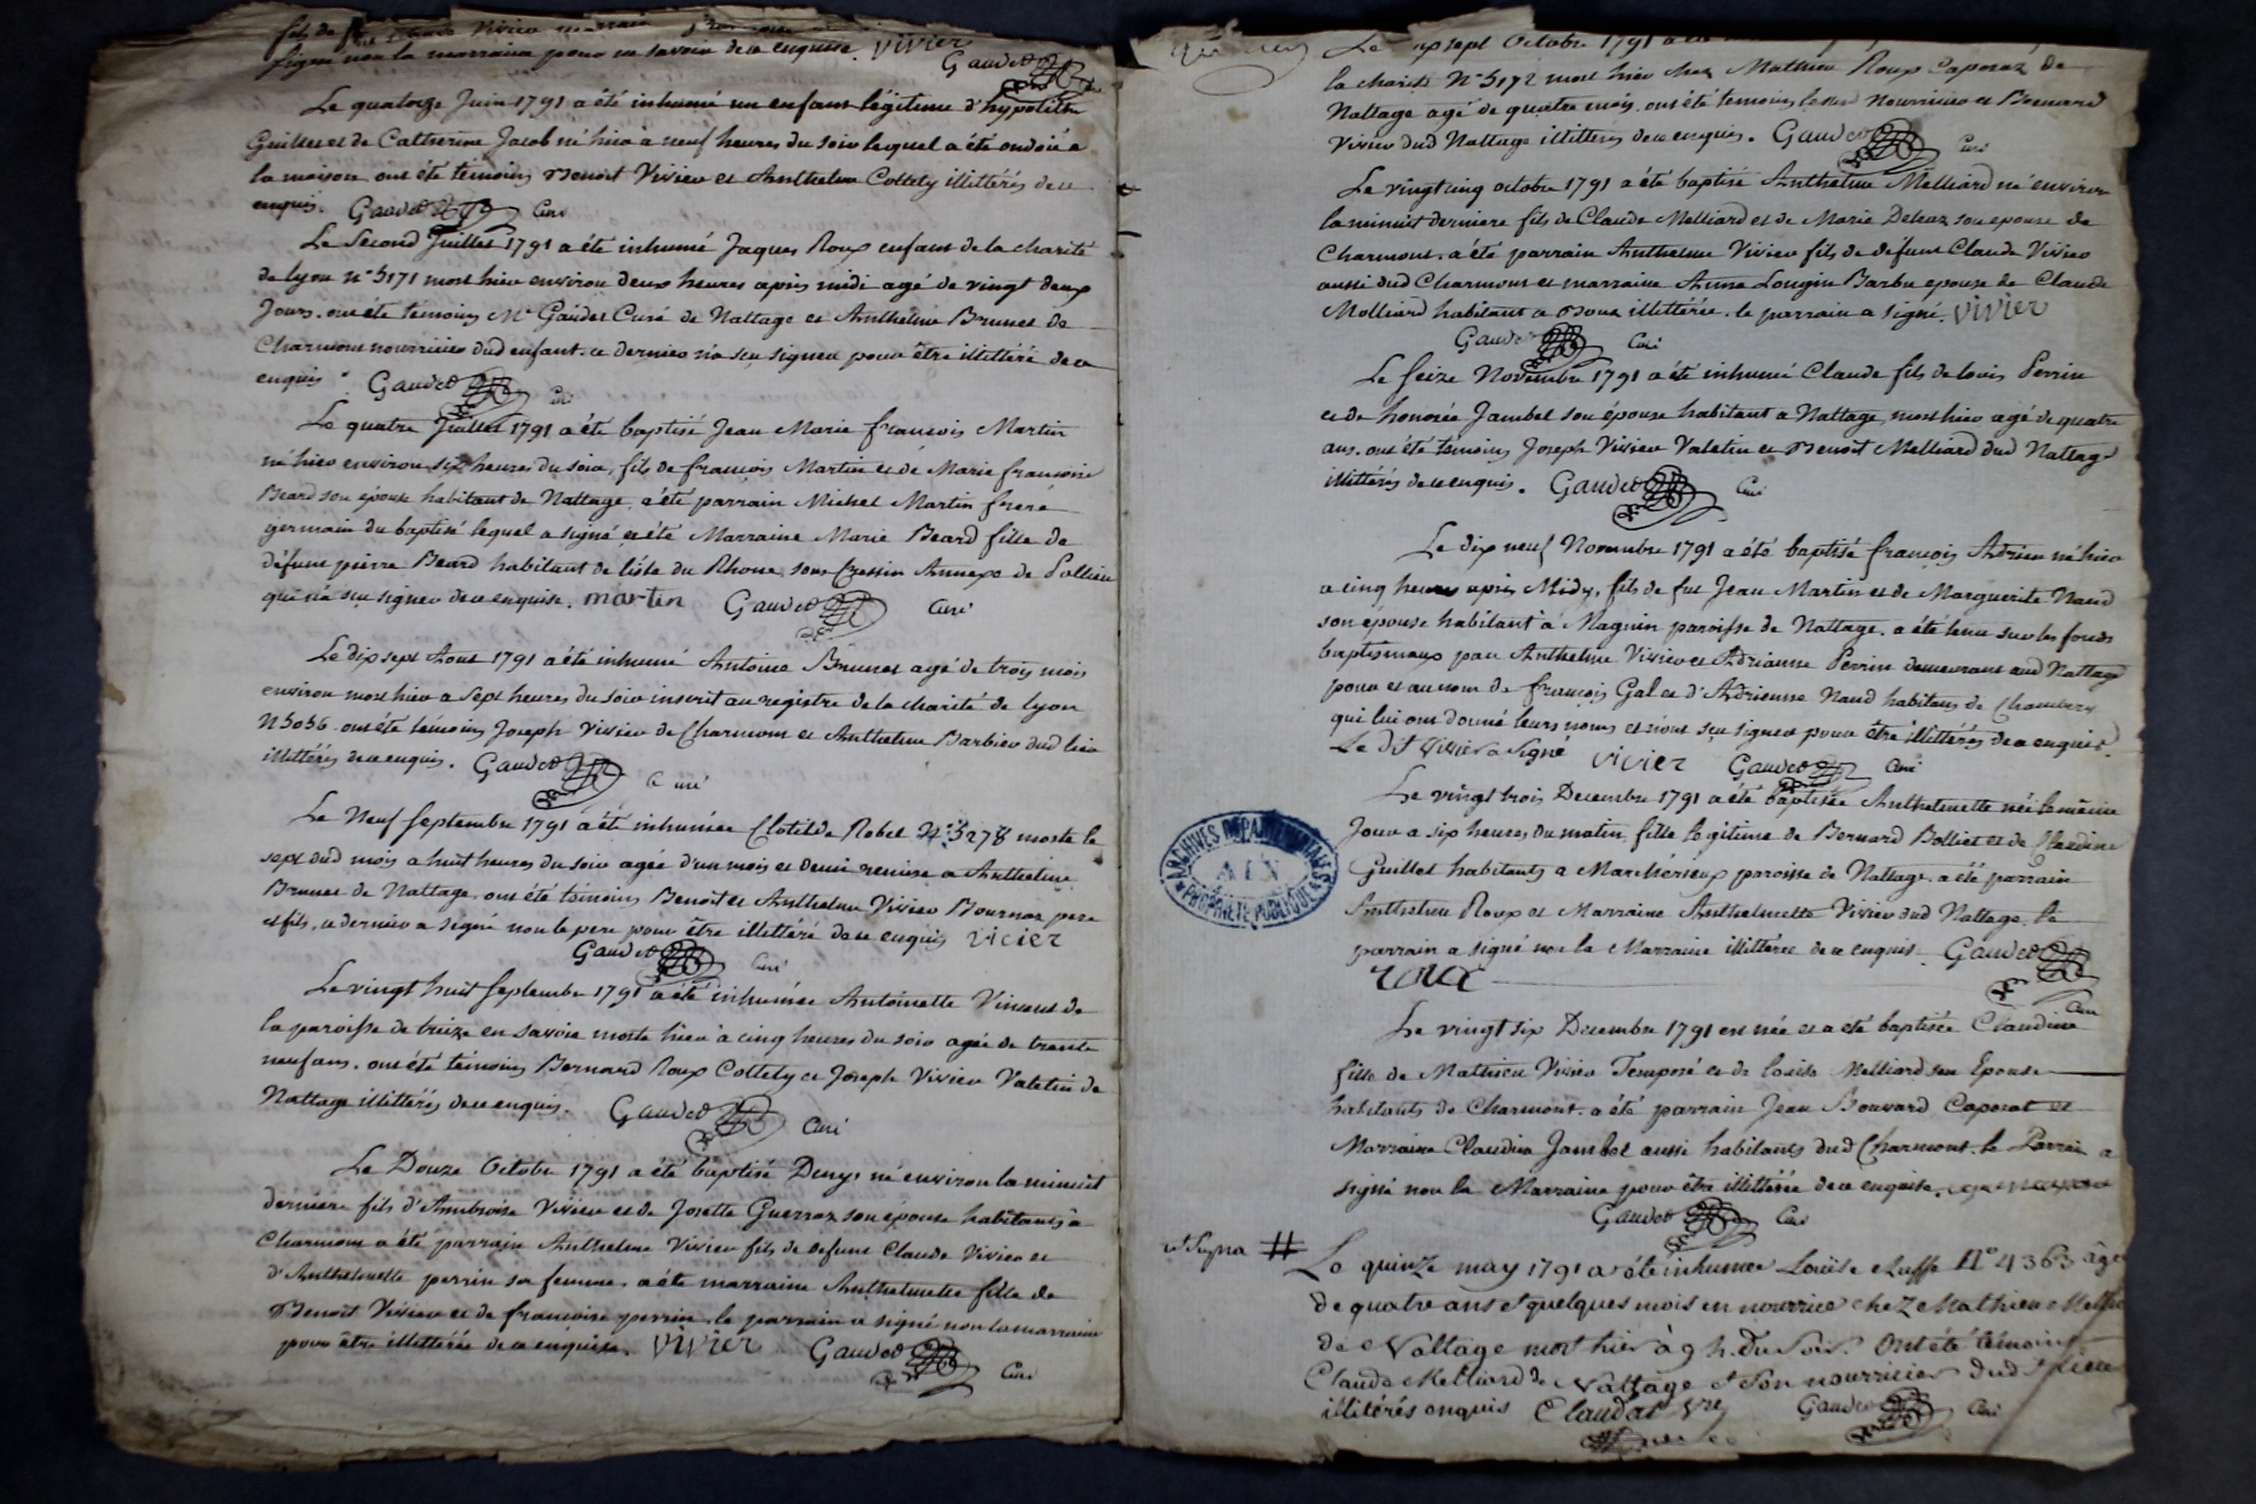 fils de Vivier marrain
signé non la marraine pour ne savoir de ce enquise. vivier
Gaudet
Le quatorze Juin 1791 a été inhumé un enfant légitime d'hypolithe
Guillet et de Catherine Jacob né hier à neuf heures du soir lequel a été ondoié a
la maison ont été témoins Benoit Vivier et Anthelme Collety illittérés de ce
enquis. Gaudet Curé
Le Second Juillet 1791 a été inhumé Jaques Roux enfant de la charité
de lyon n° 5171 mort hier environ deux heures après midi agé de vingt deux
Jours. ont été témoins Mr Gaudet Curé de Nattage et Anthelme Brunet de
Charmont nourricier dud enfant. ce dernier n'a sçu signer pour être illittéré de ce
enquis. Gaudet Curé
Le quatre Juillet 1791 a été baptisé Jean Marie françois Martin
né hier environ six heures du soir, fils de françois Martin et de Marie françoise
Beard son épouse habitant de Nattage. a été parrain Michel Martin frere
germain du baptisé lequel a signé et été Marraine Marie Beard fille de
défunt pierre Beard habitant de l'isle du Rhone, sous Cressin Annexe de Pollieu
qui n'a sçu signer de ce enquise. martin Gaudet Curé
Le dix sept Aout 1791 a été inhumé Antoine Brunet agé de trois mois
environ mort hier a sept heures du soir inscrit au registre de la charité de lyon
N 5056. ont été témoins Joseph Vivier de Charmont et Anthelme Barbier dud lieu
illittérés de ce enquis. Gaudet Curé
Le Neuf septembre 1791 a été inhumée Clotilde Robet N° 5278 morte le
sept dud mois a huit heures du soir agée d'un mois et demi remise a Anthelme
Brunet de Nattage, ont été témoins Benoit et Anthelme Vivier Bournaz pere
et fils, ce dernier a signé non le pere pour être illittéré de ce enquis vicier
Gaudet Curé
Le vingt huit septembre 1791 a été inhumée Antoinette Vincent de
la paroisse de traize en savoie morte hier à cinq heures du soir agée de trente
neuf ans. ont été témoins Bernard Roux Collety et Joseph Vivier Valetin de
Nattage illittérés de ce enquis. Gaudet Curé
Le Douze Octobre 1791 a été baptisé Denys né environ la minuit
derniere fils d'Ambroise Vivier et de Josette Guerraz son épouse habitants à
Charmont a été parrain Anthelme Vivier fils de defunt Claude Vivier et
d'Anthelmette perrin sa femme, a été marraine Anthelmette fille de
Benoit Vivier et de françoise perrin. le parrain a signé non la marraine
pour être illittérée de ce enquise. vivier Gaudet Curé
Le sept Octobre 1791 a été
la charité N° 5172 mort hier chez Mathieu Roux Caporaz de
Nattage agé de quatre mois. ont été temoins led nourricier et Bernard
Vivier dud Nattage illitteres de ce enquis. Gaudet Curé
Le vingt cinq octobre 1791 a été baptisé Anthelme Melliard né environ
la minuit derniere fils de Claude Melliard et de Marie Deleaz son epouse de
Charmont. a été parrain Anthelme Vivier fils de défunt Claude Vivier
aussi dud Charmont et marraine Anne Longin Barbu epouse de Claude
Molliard habitant a illittérée. le parrain a signé. vivier
Gaudet Curé
Le seize Novembre 1791 a été inhumé Claude fils de louis Perrin
et de honorée Jambel son épouse habitant a Nattage, mort hier agé de quatre
ans. ont été témoins Joseph Vivier Valetin et Benoit Melliard dud Nattage
illittérés de ce enquis. Gaudet Curé
Le dix neuf Novembre 1791 a été baptisé françois Adrien né hier
a cinq heures après Midy, fils de fut Jean Martin et de Marguerite Naud
son épouse habitant à Nagnin paroisse de Nattage. a été tenu sur les fonds
baptismaux par Anthelme Vivier et Adrianne Perrin demeurant aud Nattage
pour et au nom de françois Gal et d'Adrienne Naud habitans de Chambery
qui lui ont donné leurs noms et n'ont sçu signer pour être illittérés de ce enquis.
Le dit vivier a signé vivier Gaudet Curé
Le vingt trois Decembre 1791 a été baptisée Anthelmette née le même
Jour a six heures du matin fille légitime de Bernard Bolliet et de Claudine
Guillet habitants a Marchérieux paroisse de Nattage. a été parrain
Anthelme Roux et Marraine Anthelmette Vivier dud Nattage. le
parrain a signé non la Marraine illittérée de ce enquis. Gaudet
roux
Curé
Le vingt six Decembre 1791 est née et a été baptisée Claudine
fille de Mathieu Vivier Temporé et de louise Melliard son Epouse
habitants de Charmont. a été parrain Jean Bouvard Caporat et
Marraine Claudine Jambel aussi habitants dud Charmont. le Parrain a
signé non la Marraine pour être illittérée de ce enquise.
Gaudet Curé
et supra # Le quinze may 1791 a été inhumée Louïse N° 4363 âgée
de quatre ans et quelques mois en nourrice chez Mathieu
de Nattage mort hier à 9 h. du soir. Ont été témoins
Claude Melliard de Nattage et son nourricier dud lieu
illitérés enquis Claudat Vre Gaudet Curé
ARCHIVES DÉPARTEMENTALES
AIN
PROPRIÉTÉ PUBLIQUE